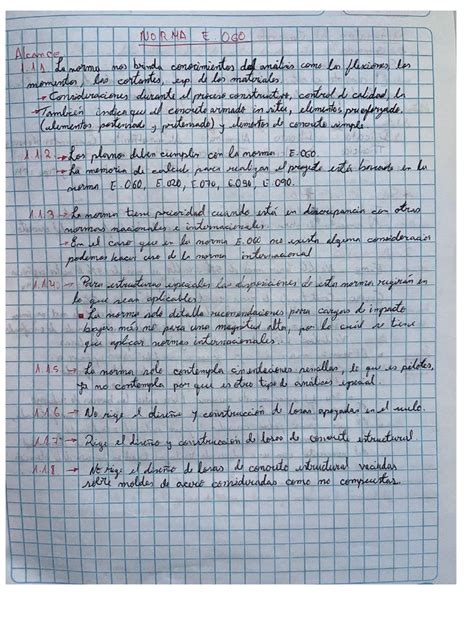 NORMA E 060
Alcance
1.1.1 La norma nos brinda conocimientos del análisis como las flexiones, los
momentos, las cortantes, esp. de los materiales.
→ Consideraciones durante el proceso constructivo, control de calidad, la
→ También indica que el concreto armado in situ, elementos preforzado.
(elementos postensado y pretensado) y elementos de concreto simple.
1.1.2 → Los planos deben cumplir con la norma E.060
→ La memoria de calculo para realizar el proyecto está basado en la
norma E.060, E.020, E.070, E.090.
1.1.3 → La norma tiene prioridad cuando está en discrepancia con otras
normas nacionales e internacionales
→ En el caso que en la norma E.060 no exista alguna consideración
podemos hacer uso de la norma internacional
1.1.4 → Para estructuras especiales las disposiciones de esta norma regirán en
lo que sean aplicables.
La norma solo detalla recomendaciones para cargas de impacto
bajas más no para una magnitud alta, por lo cual se tiene
que aplicar normas internacionales.
1.1.5 → La norma solo contempla cimentaciones sencillas, lo que es pilotes,
ya no contempla por que es otro tipo de análisis especial
1.1.6 → No rige el diseño y construcción de losas apoyadas en el suelo.
1.1.7 → Rige el diseño y construcción de losas de concreto estructural
1.1.8 → No rige el diseño de losas de concreto estructural vaciadas
sobre moldes de acero consideradas como no compuestas.